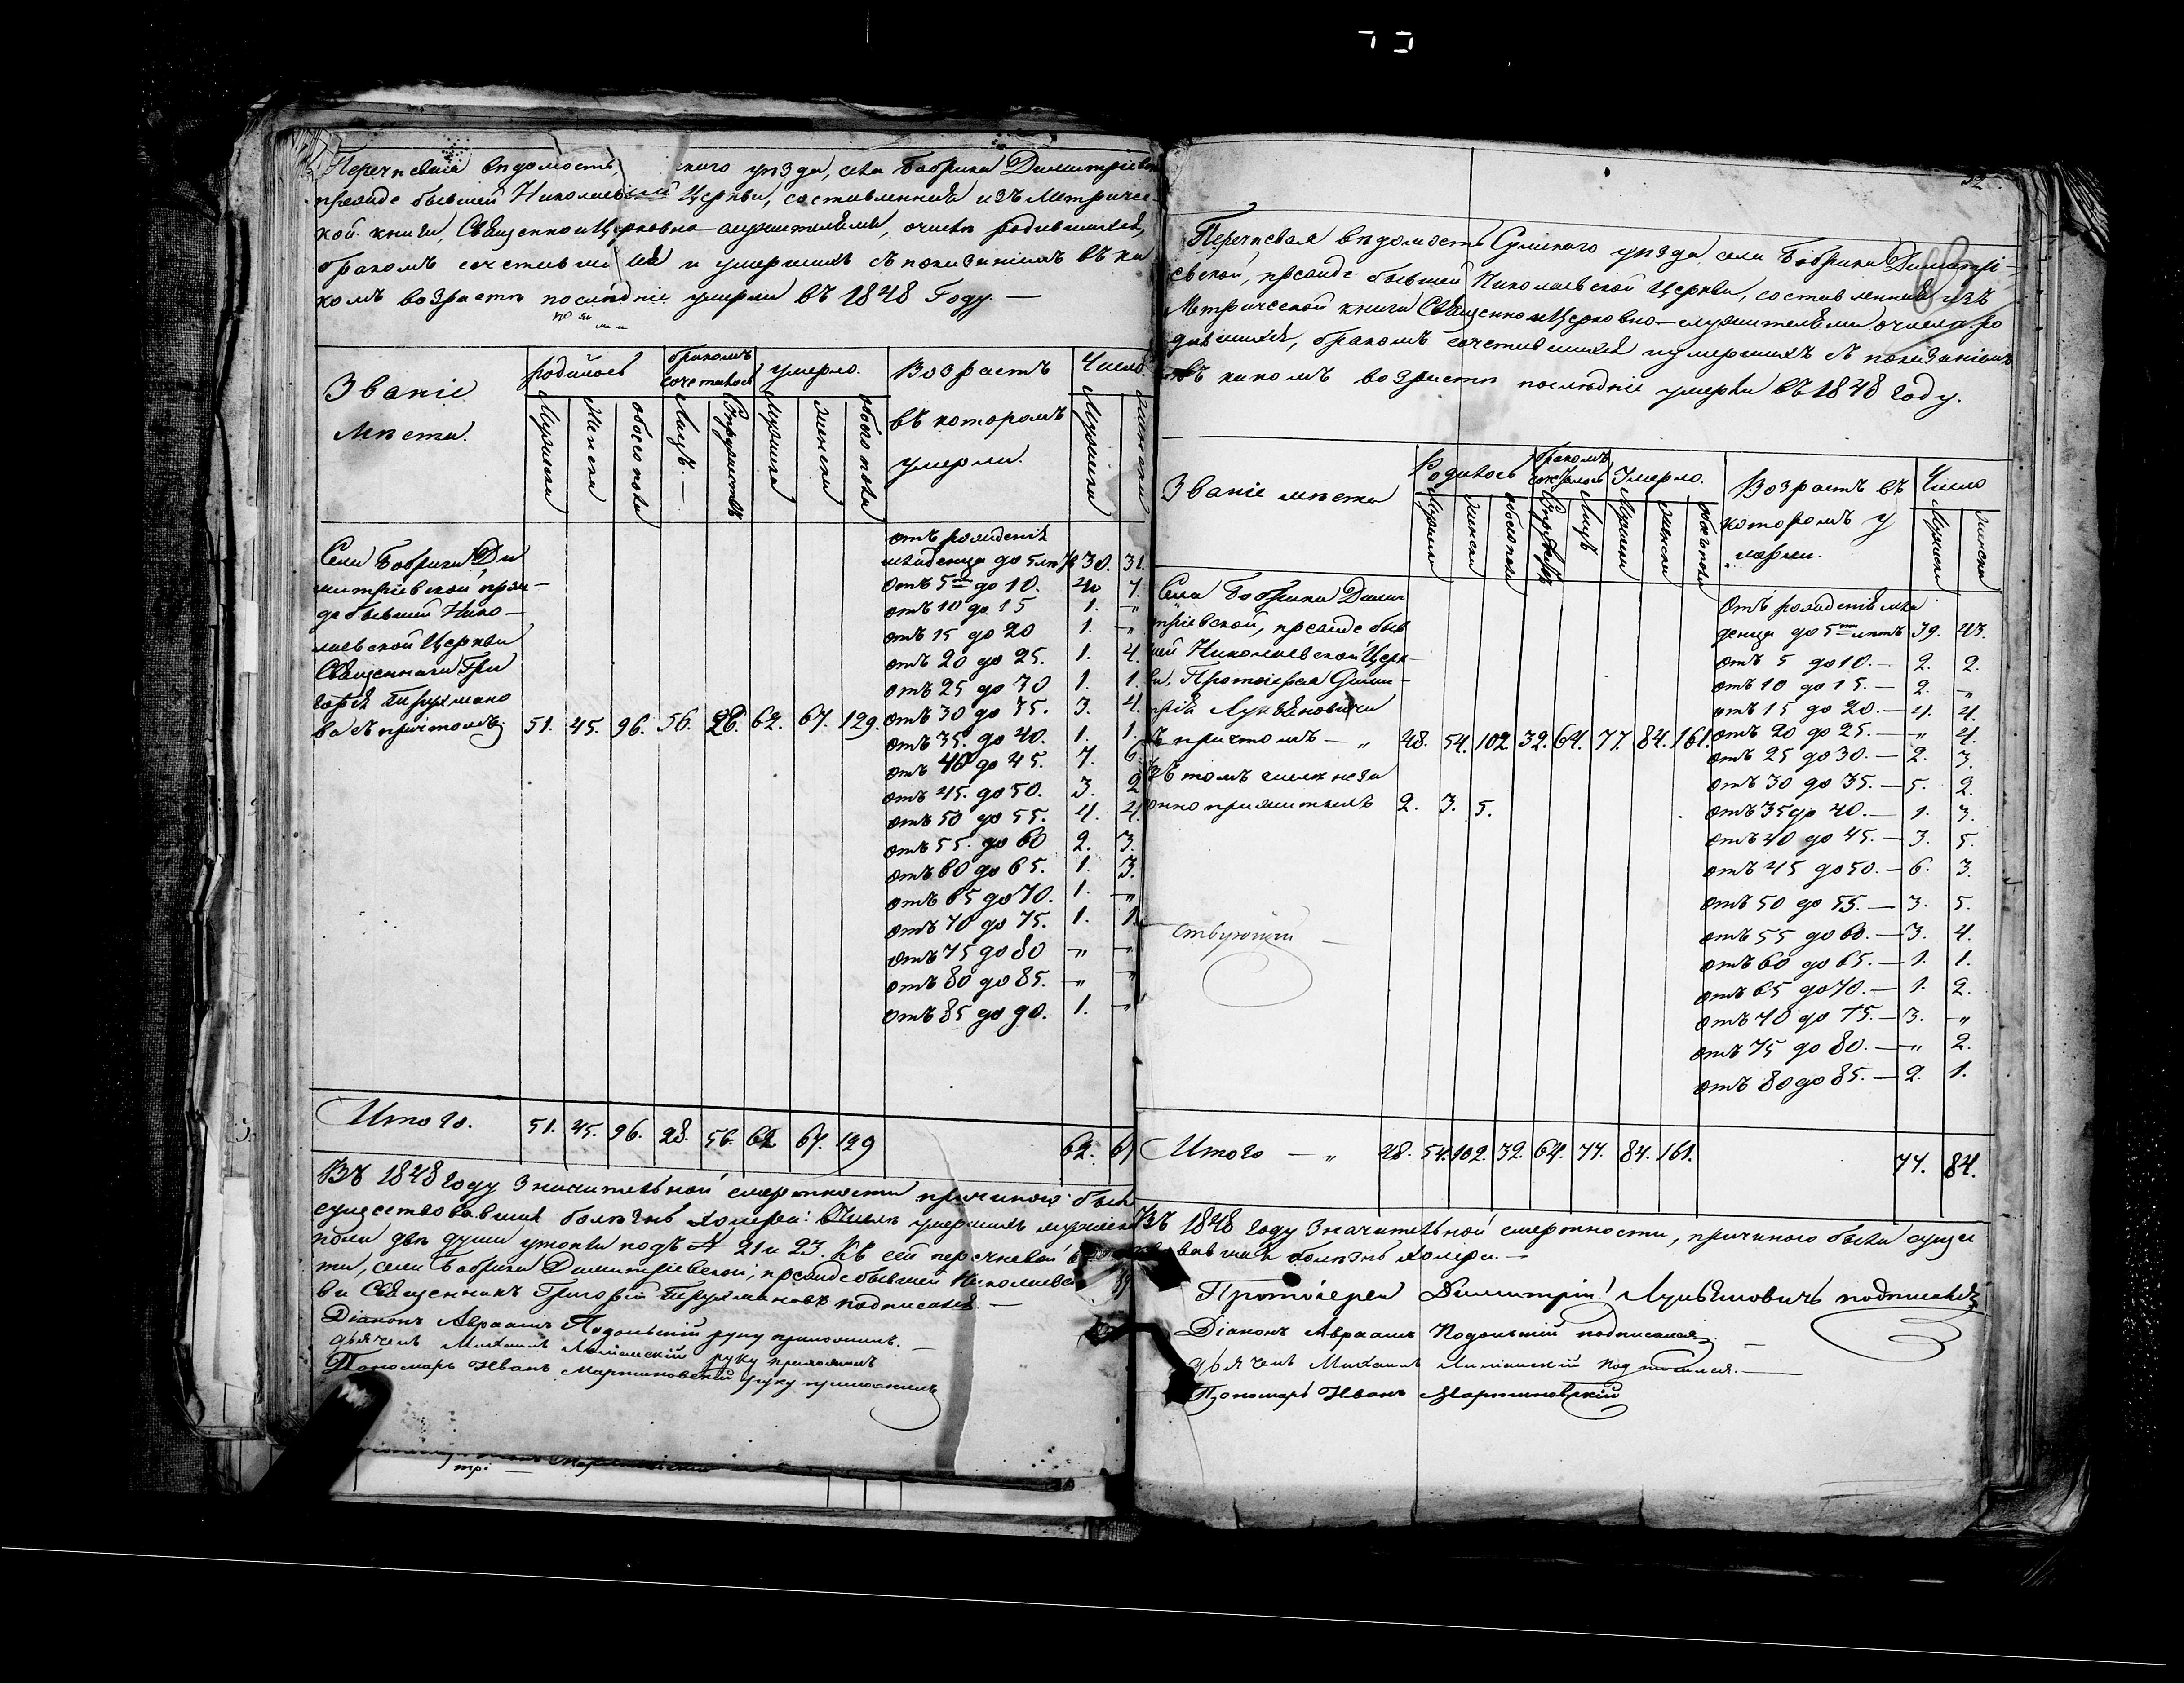 Перечневая вѣдомость скаго уѣзда, села Бобрика Димитріевской
прежде бывшей Николаевской Церкви, составленная изъ Метричес-
кой книги, Священноицерковно-служителями, о числѣ родившихся,
бракомъ сочетавшихся и умершихъ съ показаніемъ въ ка
комъ возрастѣ послѣдніе умерли въ 1848 Году. —
Званіе
мѣста.
родилось
Мужеска
Женска
обоего пола
бракомъ
сочеталось
Лицъ. —
Супружествъ
умерло.
Мужеска
женска
обоего пола
Возрастъ
въ которомъ
умерли.
Число
Мужеска
женска
Села Бобрика Ди
митріевской преж-
де бывшей Нико-
лаевской Церкви
Священника Гри
горія
ва съ причтомъ 51. 45. 96. 56. 28. 62. 67. 129.
отъ рожденія
младенца до 5 лѣтъ 30. 31.
отъ 5 до 10. 4 7.
отъ 10 до 15 1. „
отъ 15 до 20 1. „
отъ 20 до 25. 1. 4.
отъ 25 до 30 1. 1.
отъ 30 до 35. 3. 4.
отъ 35. до 40. 1. 1.
отъ 40 до 45. 7. 6
отъ 45. до 50. 3. 2
отъ 50 до 55. 4. 4.
отъ 55. до 60 2. 3.
отъ 60 до 65. 1. 3.
отъ 65 до 70. 1. „
отъ 70 до 75. 1. 1.
отъ 75 до 80 „ „
отъ 80 до 85. „ „
отъ 85 до 90. 1. „
Итого. 51. 45. 96. 28. 56. 62 67. 129 62. 67
Въ 1848 году значительной смертности причиною была
существовавшая болѣзнь холера: въ числѣ умершихъ мужеска
пола двѣ души утопли подъ № 21 и 23. Къ сей перечневой
ти, села Бобрика Димитріевской, прежде бывшей Николаевской
ви Священникъ Григорій подписался. —
Діаконъ Авраамъ Подольскій руку приложилъ. —
дьячекъ Михаилъ руку приложилъ
Пономарь Иванъ Мартиновскій руку приложилъ
Перечневая вѣдомость Сумскаго уѣзда села Бобрика Димитрі-
евской, прежде бывшей Николаевской Церкви, составленная изъ
Метрической книги Священноицерковно-служителями о числѣ ро
дившихся, бракомъ сочетавшихся и умершихъ съ показаніемъ
въ какомъ возрастѣ послѣдніе умерли въ 1848 году.
Званіе мѣста
Родилось
Мужеска
женска
обоего пола
бракомъ
сочеталось
Супружествъ
Лицъ
Умерло.
Мужеска
женска
обоего пола
Возрастъ въ
которомъ у
мерли.
Число
Мужеска
женска
Села Бобрика Дими
тріевской, прежде быв
шей Николаевской Церк-
ви, Протоіерея Дими-
трія
съ причтомъ — „ 48. 54. 102. 32. 64. 77. 84. 161.
Въ томъ числѣ неза
конно прижитыхъ 2. 3. 5.
ствующій —
Отъ рожденія мла
денца до 5 лѣтъ 39. 43.
отъ 5 до 10. — 2. 2.
отъ 10 до 15. — 2. „
отъ 15 до 20. — 4. 4.
отъ 20 до 25. — „ 4.
отъ 25 до 30. — 2. 3.
отъ 30 до 35. — 5. 2.
отъ 35 до 40. — 1. 3.
отъ 40 до 45. — 3. 5.
отъ 45 до 50. — 6. 3.
отъ 50 до 55. — 3. 5.
отъ 55 до 60. — 3. 4.
отъ 60 до 65. — 1. 1.
отъ 65 до 70. — 1. 2.
отъ 70 до 75. — 3. „
отъ 75 до 80. — „ 2.
отъ 80 до 85. — 2. 1.
Итого — „ 48. 54. 102. 32. 64. 77. 84. 161. 77. 84.
Въ 1848 году значительной смертности, причиною была суще
ствовавшая болѣзнь холера. —
Протоіерей Димитрій подписался
Діаконъ Авраамъ Подольскій подписался
дьячекъ Михаилъ подписался. —
Пономарь Иванъ Мартиновскій